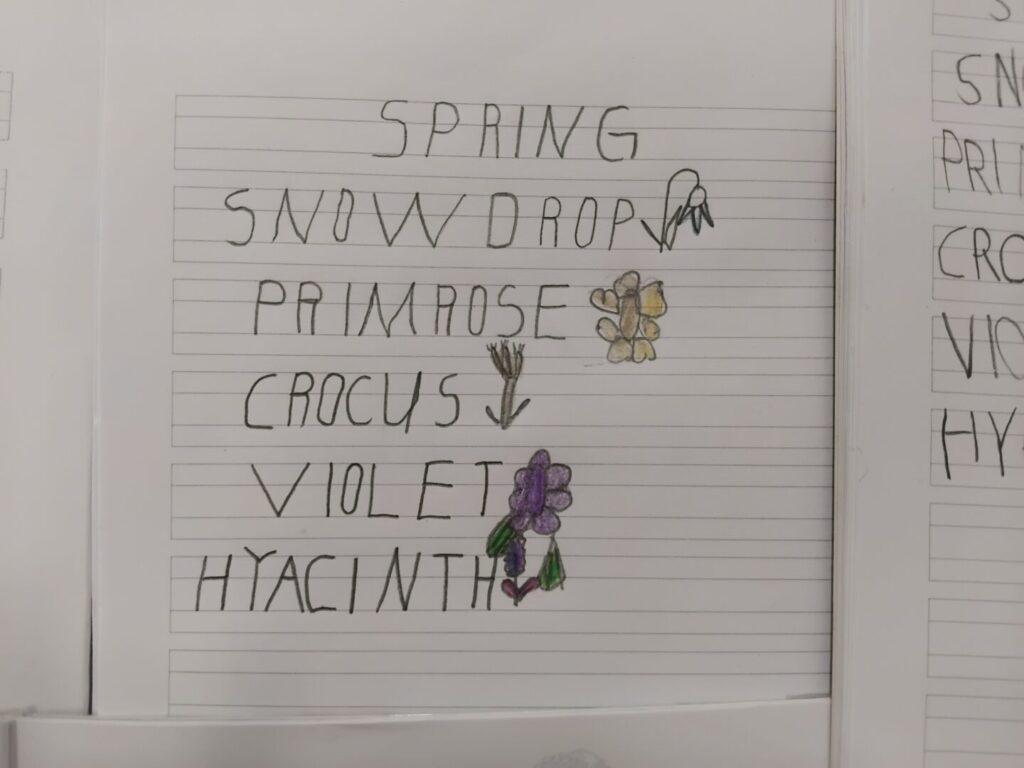 SPRING
SNOWDROP
PRIMROSE
CROCUS
VIOLET
HYACINTH
SN
PRI
CRO
VIO
HY